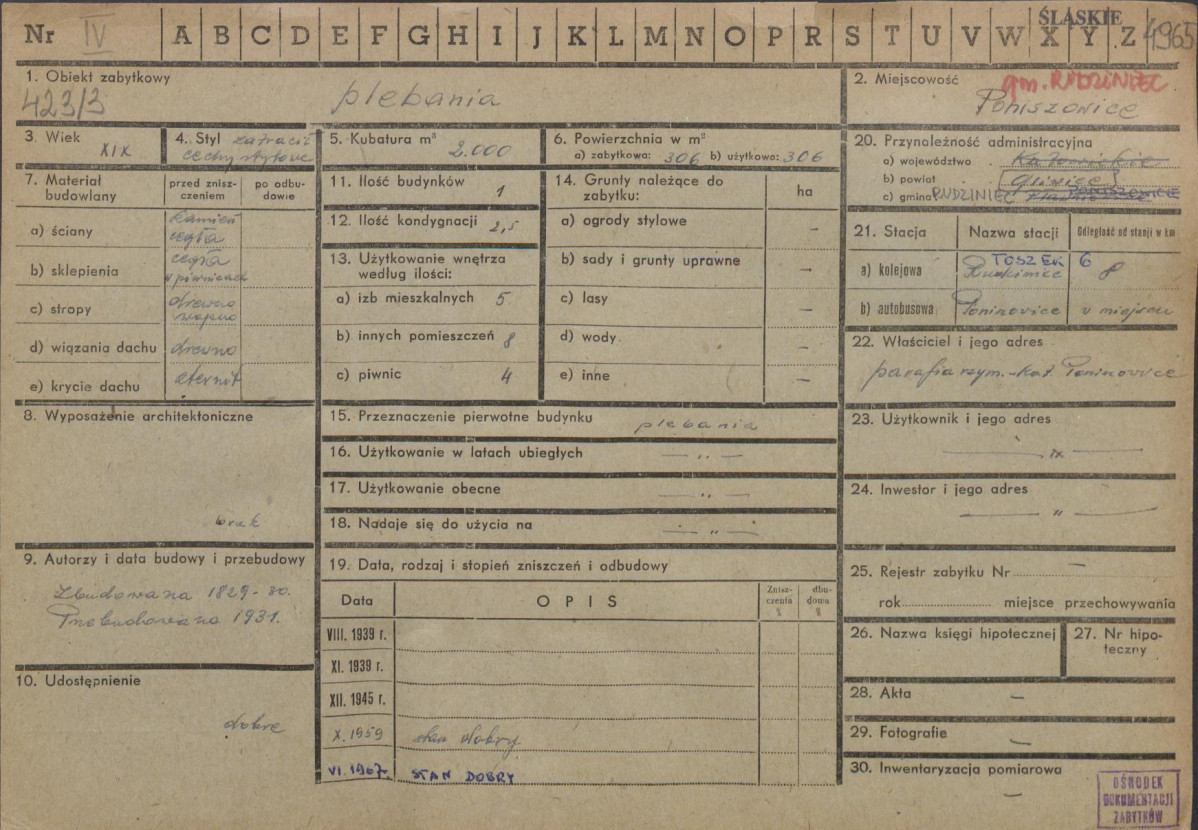 Nr IV A B C D E F G H I J K L M N O P R S T U V W X Y Z ŚLĄSKIE 4965
1. Obiekt zabytkowy
423/3 plebania
2. Miejscowość gm. RUDZINIEC
Poniszowice
3. Wiek XIX
4. Styl zatracił
cechy stylowe
5. Kubatura m³ 2.000
6. Powierzchnia w m²
a) zabytkowa: 306 b) użytkowa: 306
7. Materiał budowlany
przed zniszczeniem
po odbudowie
a) ściany kamień
cegła
b) sklepienia cegła
w piwnicach
c) stropy drewno
d) wiązania dachu drewno
e) krycie dachu eternit
8. Wyposażenie architektoniczne
brak
9. Autorzy i data budowy i przebudowy
Zbudowana 1829-30.
Przebudowana 1931.
10. Udostępnienie
dobre
11. Ilość budynków 1
12. Ilość kondygnacji 2,5
13. Użytkowanie wnętrza
według ilości:
a) izb mieszkalnych 5
b) innych pomieszczeń 8
c) piwnic 4
14. Grunty należące do
zabytku: ha
a) ogrody stylowe –
b) sady i grunty uprawne –
c) lasy
d) wody –
e) inne –
15. Przeznaczenie pierwotne budynku plebania
16. Użytkowanie w latach ubiegłych — " —
17. Użytkowanie obecne — " —
18. Nadaje się do użycia na — " —
19. Data, rodzaj i stopień zniszczeń i odbudowy
Data OPIS Zniszczenia % dbudowa %
VIII. 1939 r.
XI. 1939 r.
XII. 1945 r.
X. 1959 stan dobry
VI. 1967. STAN DOBRY
20. Przynależność administracyjna
a) województwo Katowickie
b) powiat Gliwice
c) gmina RUDZINIEC PONISZOWICE
21. Stacja Nazwa stacji Odległość od stacji w km
a) kolejowa TOSZEK 6
8
b) autobusowa Poniszowice w miejscu
22. Właściciel i jego adres
parafia rzym.-kat. Poniszowice
23. Użytkownik i jego adres
— " —
24. Inwestor i jego adres
— " —
25. Rejestr zabytku Nr –
rok miejsce przechowywania
26. Nazwa księgi hipotecznej
27. Nr hipoteczny
28. Akta –
29. Fotografie –
30. Inwentaryzacja pomiarowa
–
OŚRODEK
DOKUMENTACJI
ZABYTKÓW